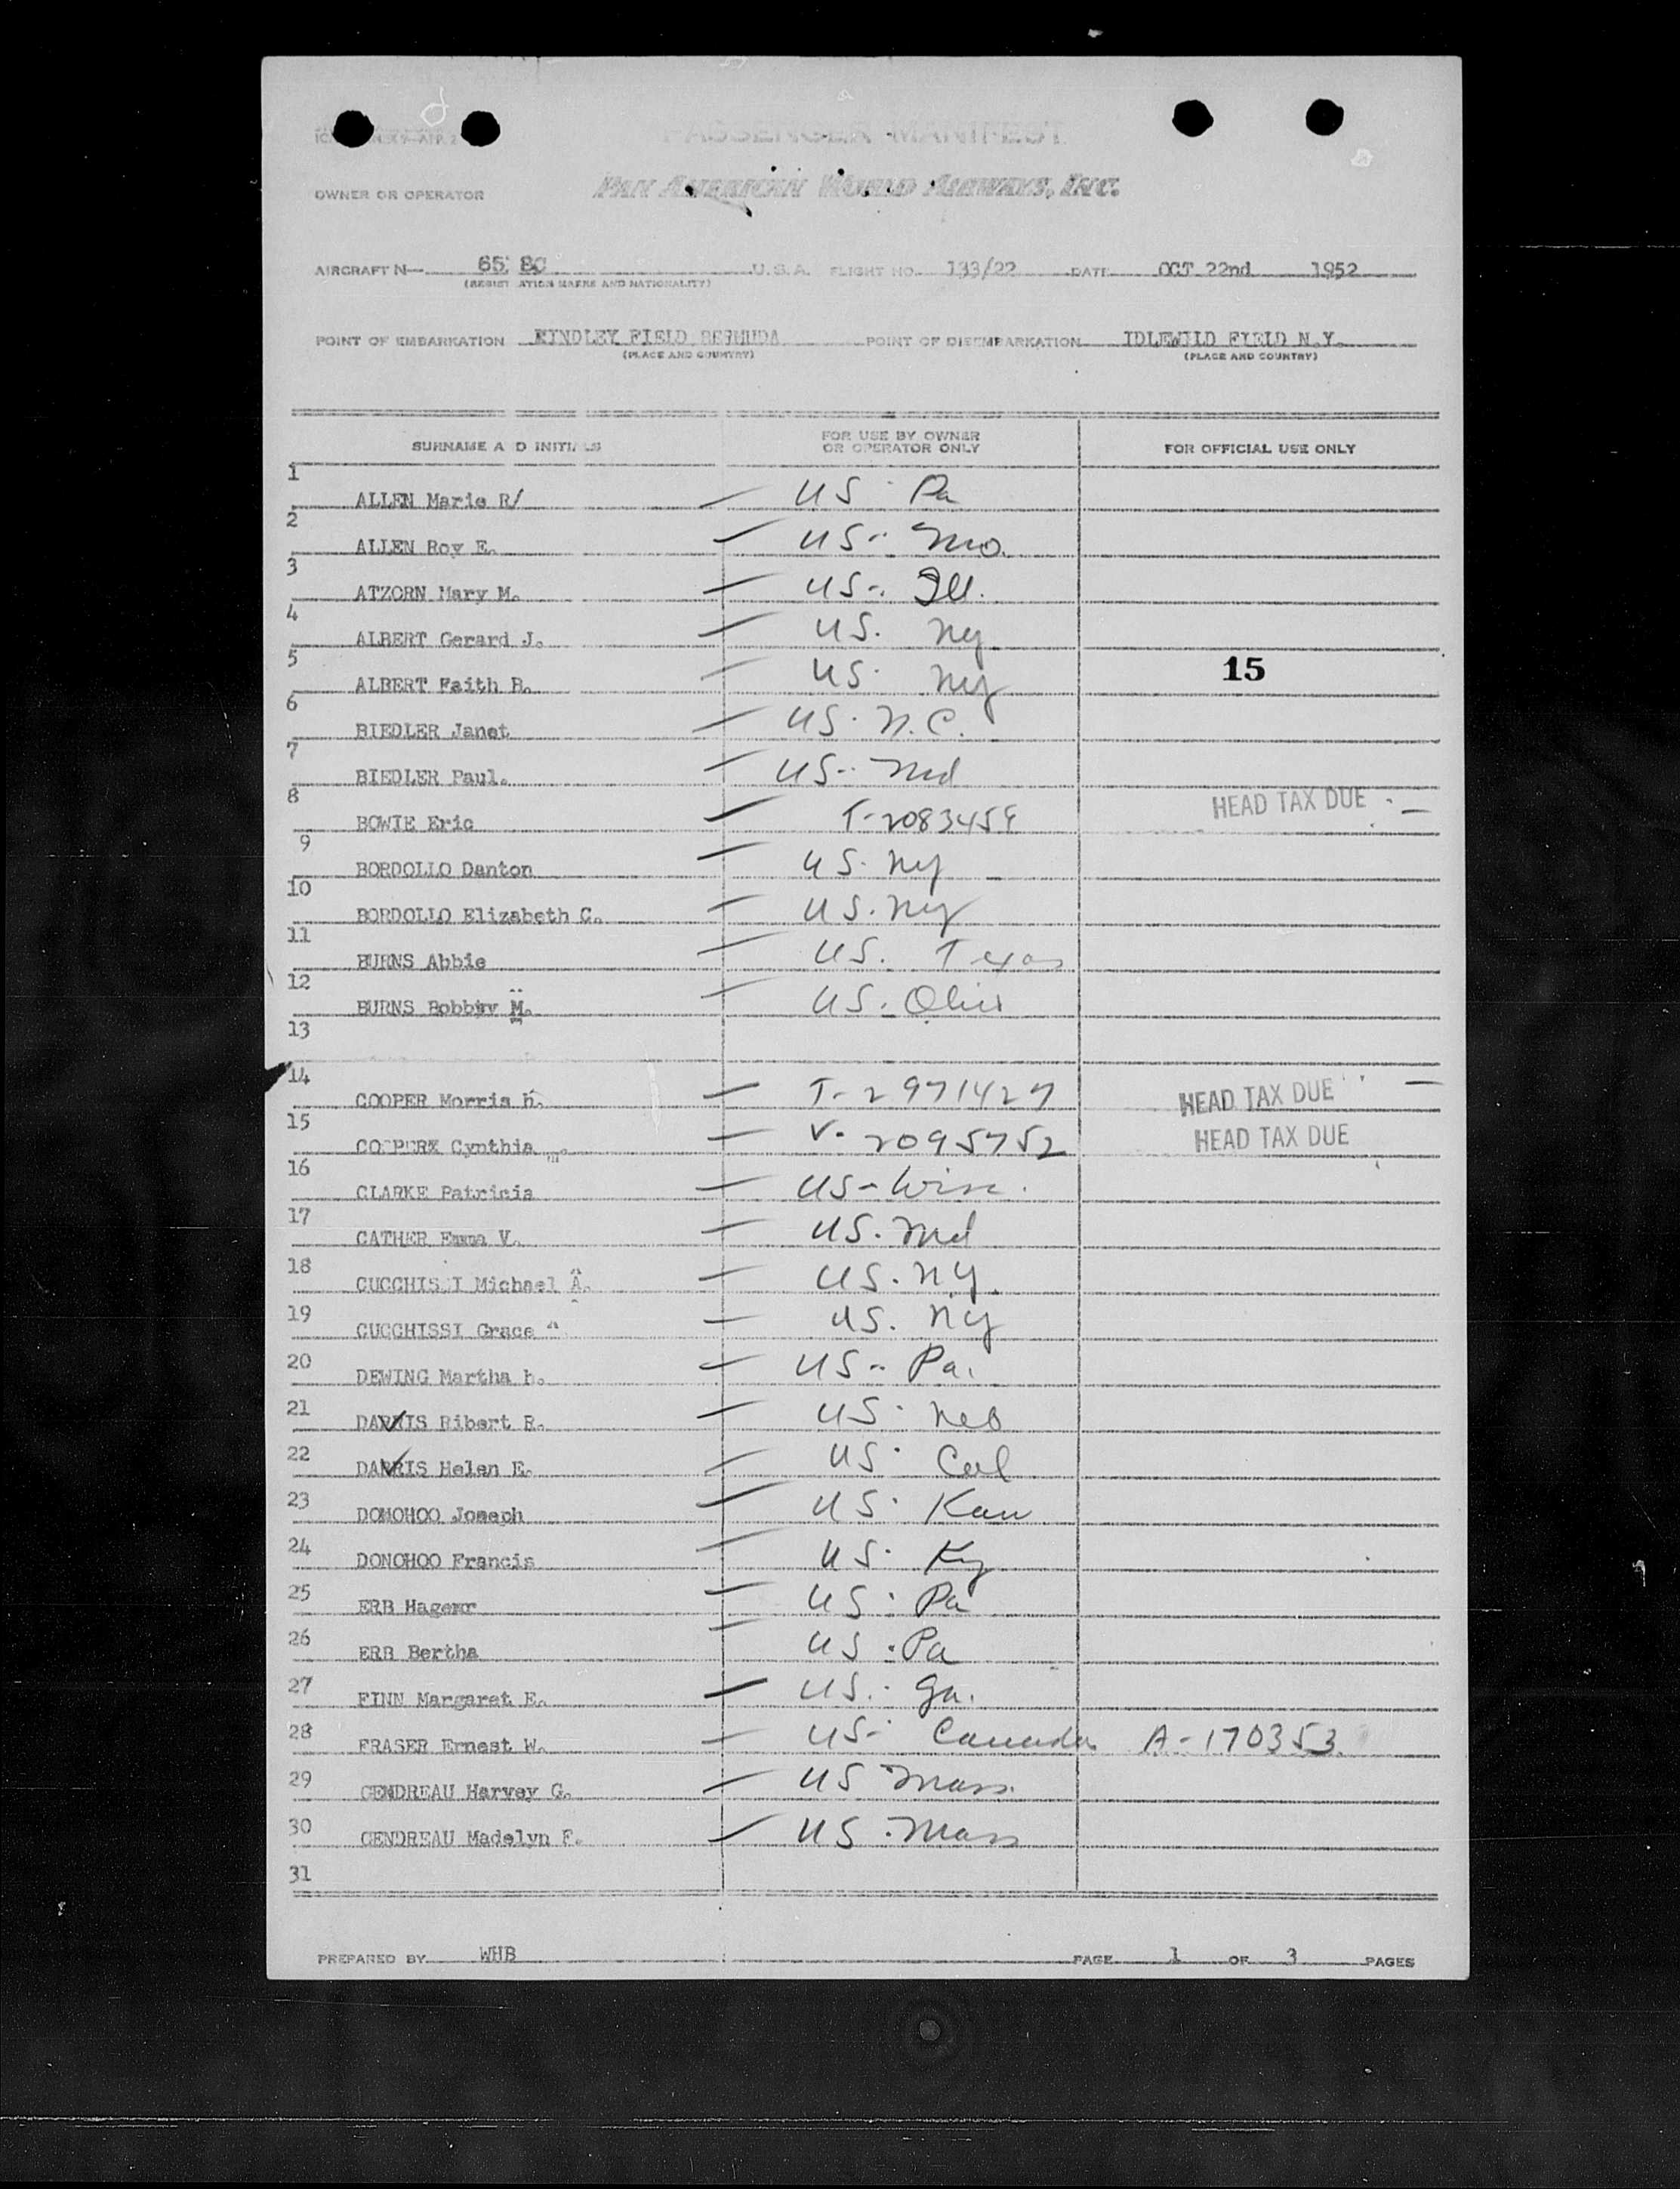 PASSENGER MANIFEST
OWNER OR OPERATOR PAN AMERICAN WORLD AIRWAYS, INC.
AIRCRAFT N— 65 80 U.S.A. FLIGHT NO. 133/22 DATE OCT 22nd 1952
(REGISTRATION MARKS AND NATIONALITY)
POINT OF EMBARKATION KINDLEY FIELD BERMUDA POINT OF DISEMBARKATION IDLEWILD FIELD N.Y.
(PLACE AND COUNTRY) (PLACE AND COUNTRY)
SURNAME AND INITIALS FOR USE BY OWNER OR OPERATOR ONLY FOR OFFICIAL USE ONLY
1 ALLEN Marie R/ — US - Pa
2 ALLEN Roy E. — US - Mo.
3 ATZORN Mary M. — US - Ill.
4 ALBERT Gerard J. — US. Ny
5 ALBERT Faith B. — US. Ny 15
6 BIEDLER Janet — US. N.C.
7 BIEDLER Paul. — US - Md
8 BOWIE Eric — T-2083459 HEAD TAX DUE -
9 BORDOLLO Danton — US. Ny
10 BORDOLLO Elizabeth C. — US. Ny
11 BURNS Abbie — US. Texas
12 BURNS Bobby M. — US. Ohio
13
14 COOPER Morris h. — T-2971427 HEAD TAX DUE —
15 COOPER Cynthia — V-2095752 HEAD TAX DUE
16 CLARKE Patricia — US - Wisc.
17 CATHER Emma V. — US. Md
18 CUCCHISSI Michael A. — US. NY.
19 CUCCHISSI Grace " — US. Ny
20 DEWING Martha h. — US - Pa.
21 DARRIS Ribert R. — US - Neb
22 DARRIS Helen E. — US - Cal
23 DOMOHOO Joseph — US - Kan
24 DONOHOO Francis — US - Ky
25 ERB Hagemr — US - Pa
26 ERB Bertha — US - Pa
27 FINN Margaret E. — US. - Ga.
28 FRASER Ernest W. — US - Canada A-170353
29 GENDREAU Harvey G. — US Mass.
30 GENDREAU Madelyn F. — US - Mass
31
PREPARED BY WHB PAGE 1 OF 3 PAGES